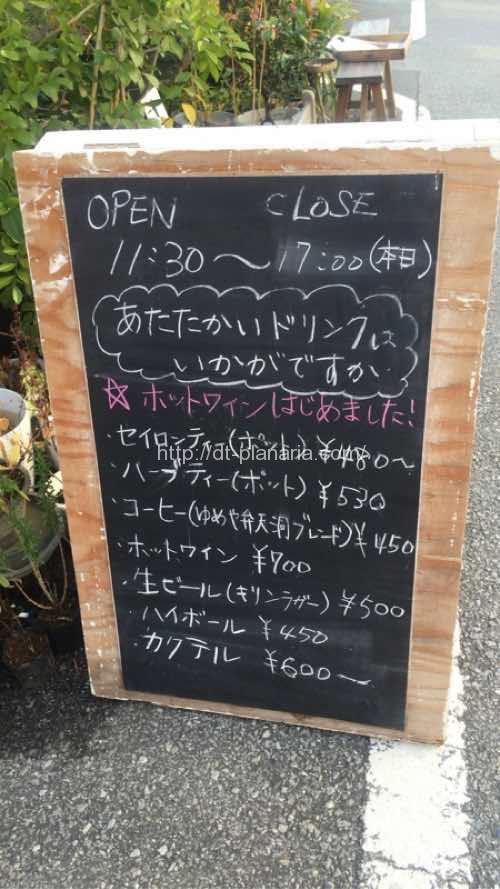 OPEN CLOSE
11:30～17:00(本日)
あたたかいドリンクは
いかがですか
☆ホットワインはじめました!
・セイロンティー(ポット) ¥480～
http://dt-planaria.com/
・ハーブティー(ポット) ¥530
・コーヒー(ゆめや弁天洞ブレンド)¥450
・ホットワイン ¥700
・生ビール(キリンラガー) ¥500
・ハイボール ¥450
・カクテル ¥600～